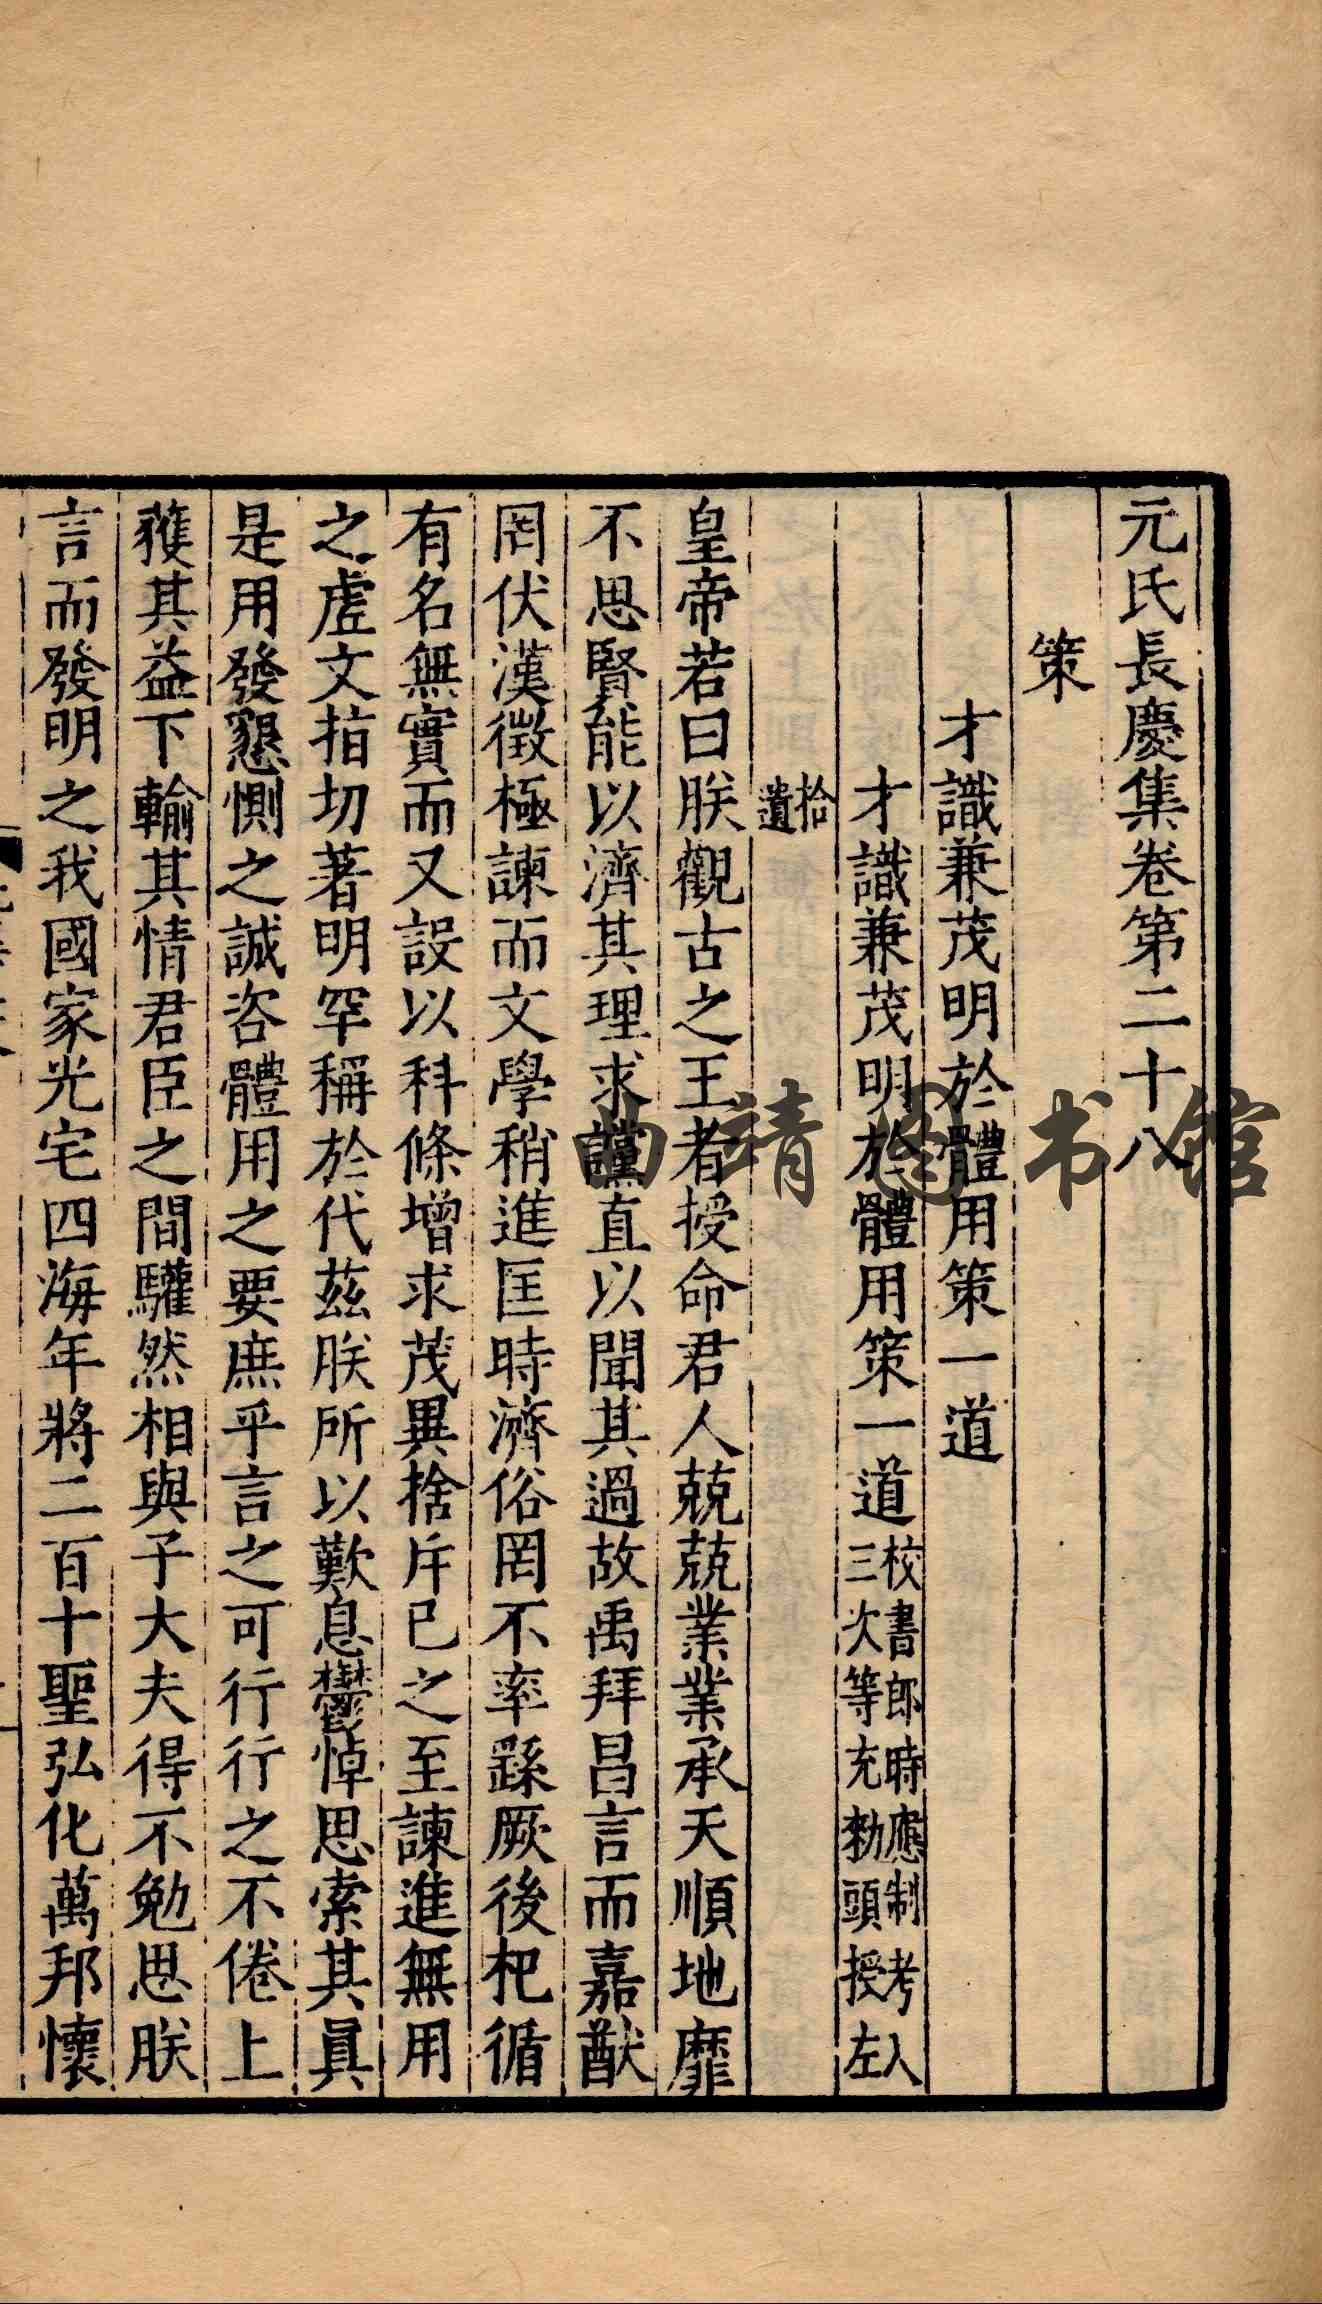 元氏長慶集卷第二十八
策
才識兼茂明於體用策一道
才識兼茂明於體用策一道校書郎時應制考入三次等充勑頭授左
拾遺
皇帝若曰朕觀古之王者授命君人兢兢業業承天順地靡
不思賢能以濟其理求讜直以聞其過故禹拜昌言而嘉猷
罔伏漢徵極諫而文學稍進匡時濟俗罔不率繇厥後杞循
有名無實而又設以科條增求茂異捨斥已之至諫進無用
之虛文指切著明罕稱於代茲朕所以歎息鬱悼思索其真
是用發懇惻之誠咨體用之要庶乎言之可行行之不倦上
獲其益下輸其情君臣之間驩然相與子大夫得不勉思朕
言而發明之我國家光宅四海年將二百十聖弘化萬邦懷
曲靖图书馆